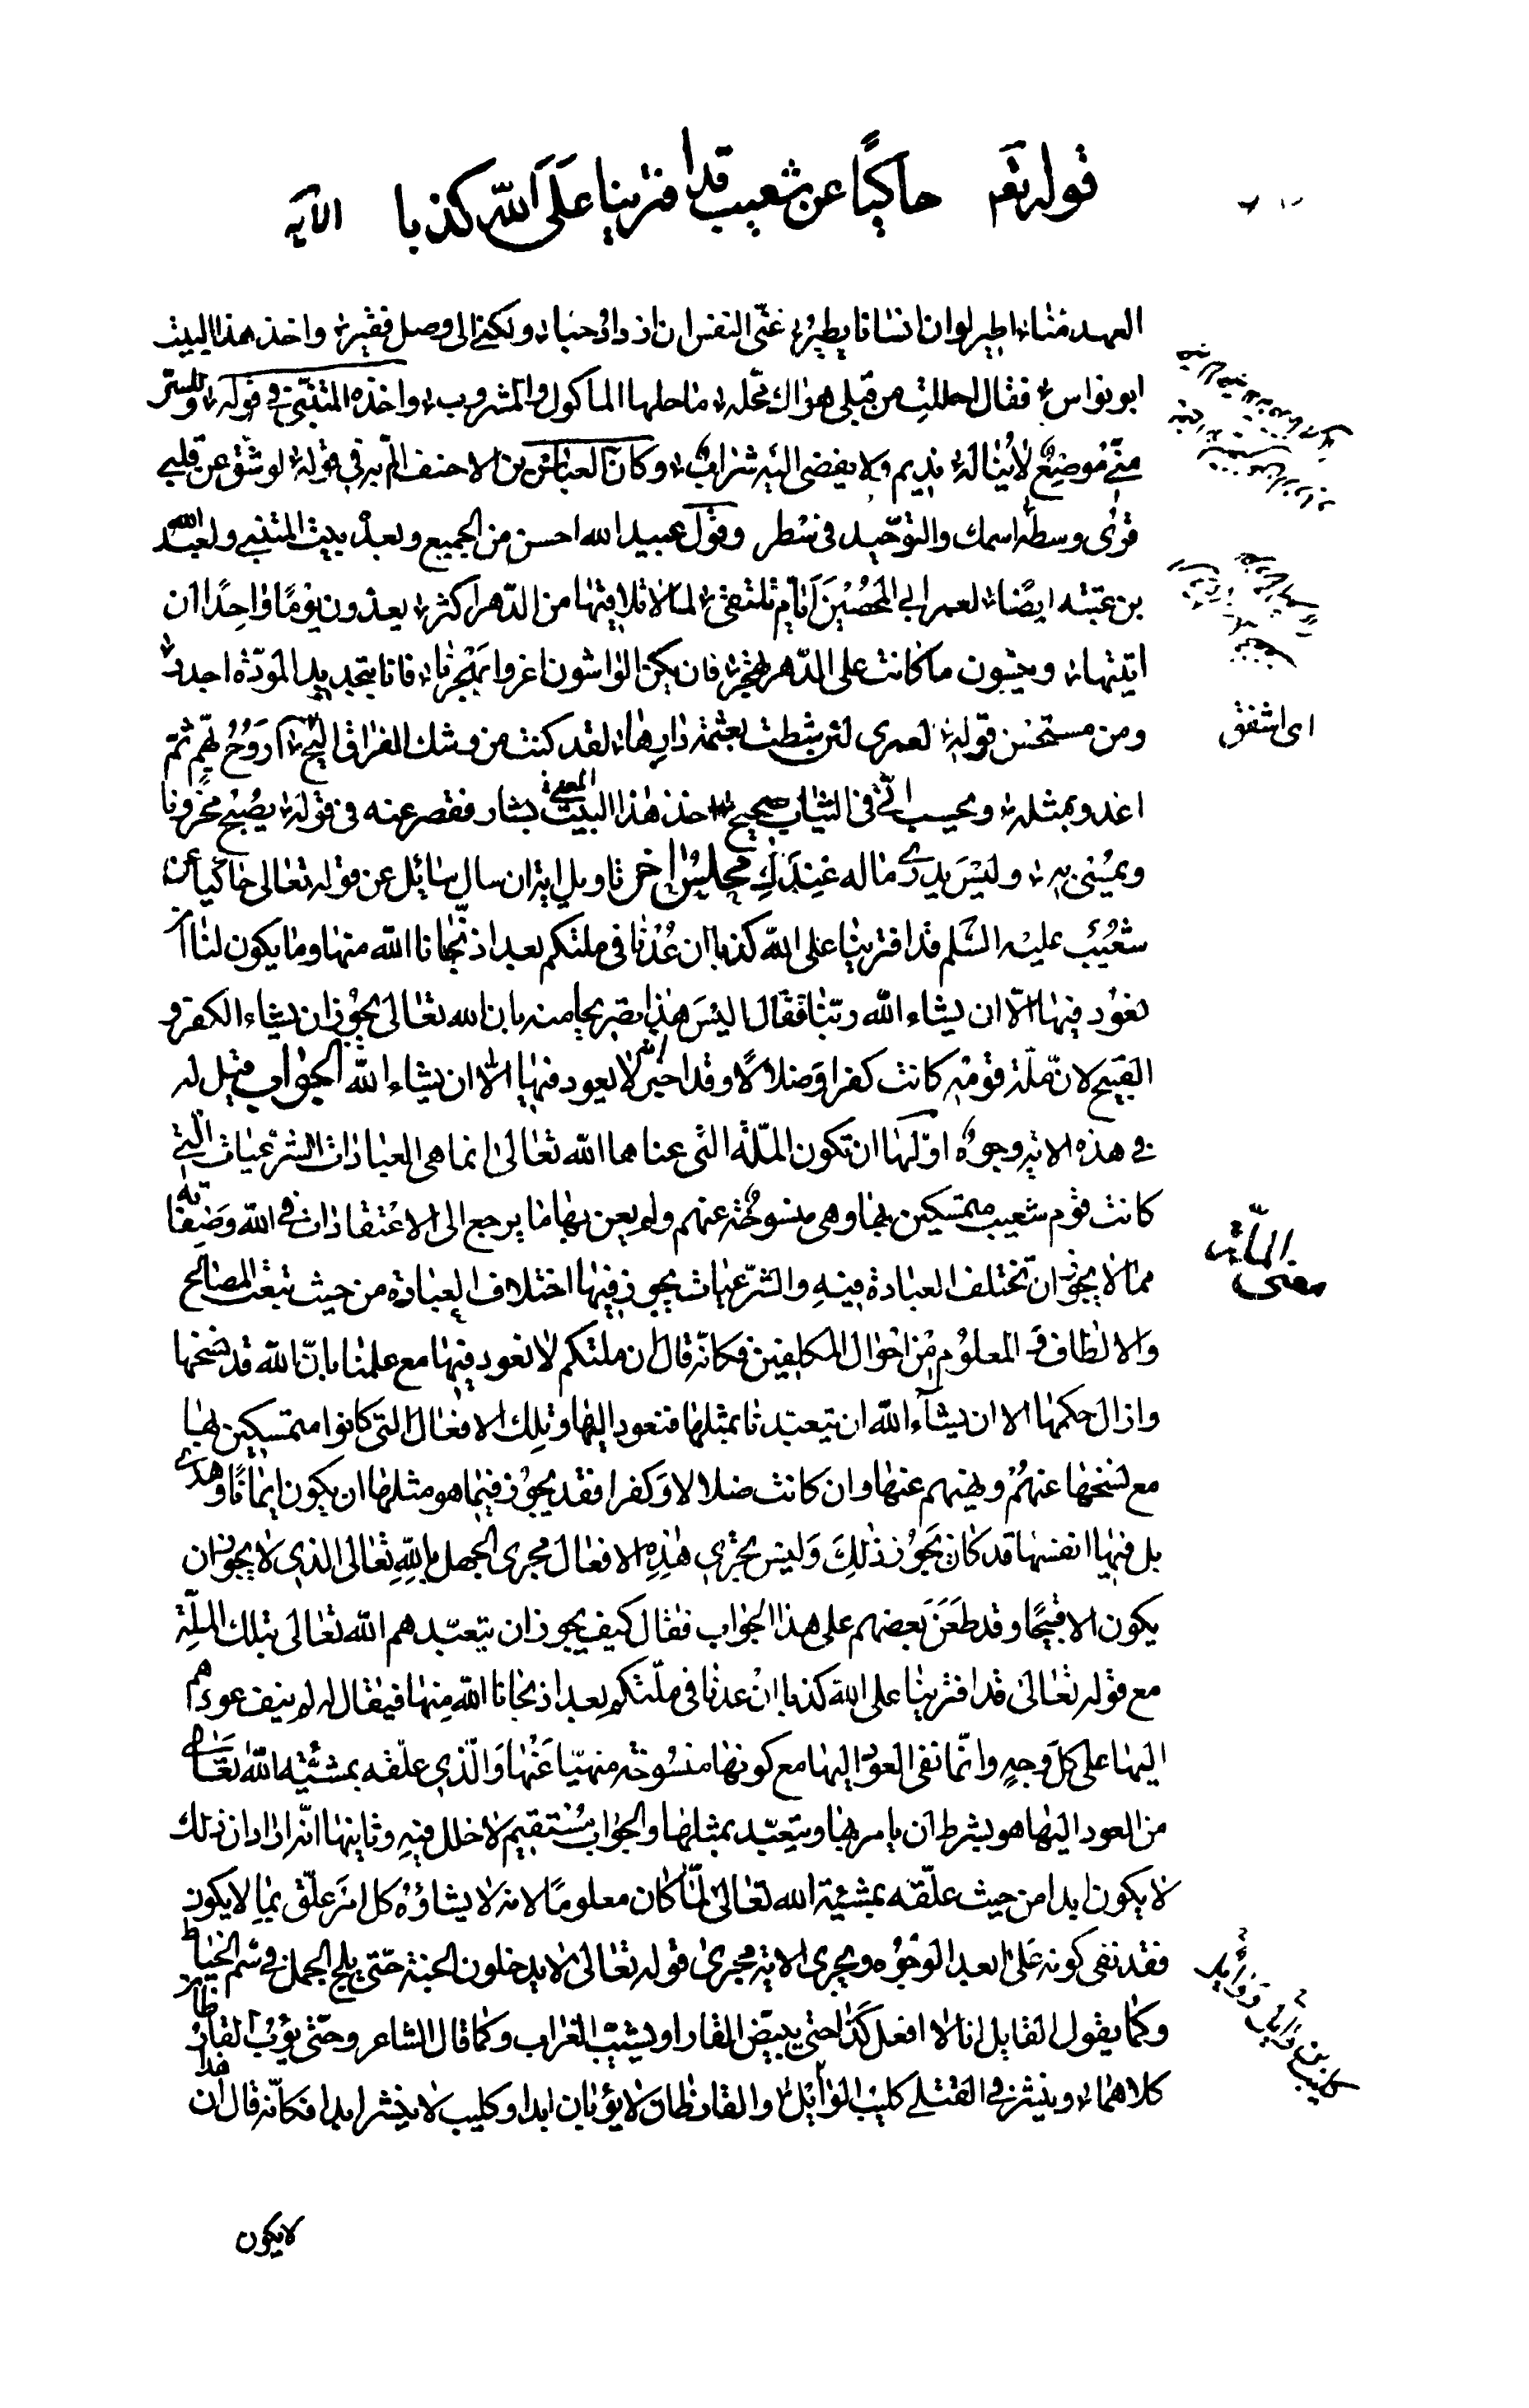 قوله تعم حاكيًا عن شعيب قد افترينا على الله كذبا الآيه
العهد منا اطير لو ان انسانا يطير غنى النفس ان ازداد حبا ولكنني الى وصل فقير واخذ هذا البيت
ابو نواس فقال احللت من قلبي هواك محلة ما حلها المأكول والمشروب واخذه المتنبي في قوله وللسر
مني موضع لا يناله نديم ولا يفضى اليه شراب وكان العباس بن الاحنف الم به في قوله لو شق عن قلبي
قرى وسطه اسمك والتوحيد في سطر وقول عبيد الله احسن من الجميع وبعده بيت المتنبي ولعبيد الله
بن عتبه ايضا لعمر ابي المحصين ايام نلتقي لما لا نلاقيها من الدهر اكثر يعدون يوما واحدا ان
اتيتها وينسون ما كانت على الدهر تهجر فان يكن الواشون اغروا بهجرنا فانا بتجديد المودة اجدر
ومن مستحسن قوله لعمري لئن شطت بعثمة دارها لقد كنت من وشك الفراق اليح اروح بهم ثم
اغدو بمثله ويحسب اني في الثياب صحيح اخذ هذا البيت المعنى بشار فقصر عنه في قوله يصبح محزونا
ويمسي به وليس يدري ما له عندك مجلس اخر تاويل اية ان سال سائل عن قوله تعالى حاكيا عن
شعيب عليه السلم قد افترينا على الله كذبا ان عدنا في ملتكم بعد اذ نجانا الله منها وما يكون لنا ان
نعود فيها الا ان يشاء الله ربنا فقال اليس هذا تصريحا منه بان الله تعالى يجوز ان يشاء الكفر و
القبيح لان ملة قومه كانت كفرا وضلالا وقد اخبر انه لا يعود فيها الا ان يشاء الله الجواب قيل له
في هذه الاية وجوه اولها ان تكون الملة التي عناها الله تعالى انما هي العبادات الشرعيات التي
كانت قوم شعيب متمسكين بها وهي منسوخة عنهم ولم يعن بها ما يرجع الى الاعتقادات في الله وصفاته
مما لا يجوز ان تختلف العبادة فيه والشرعيات يجوز فيها اختلاف العبادة من حيث تبعت المصالح
والالطاف والمعلوم من احوال المكلفين فكانه قال ان ملتكم لا نعود فيها مع علمنا بان الله قد نسخها
وازال حكمها الا ان يشاء الله ان يتعبدنا بمثلها فنعود اليها وتلك الافعال التي كانوا متمسكين بها
مع نسخها عنهم ونهيهم عنها وان كانت ضلالا وكفرا فقد يجوز فيما هو مثلها ان يكون ايمانا وهدى
بل فيها انفسها قد كان يجوز ذلك وليس تجري هذه الافعال مجرى الجهل بالله تعالى الذي لا يجوز ان
يكون الا قبيحا وقد طعن بعضهم على هذا الجواب فقال كيف يجوز ان يتعبدهم الله تعالى بتلك الملة
مع قوله تعالى قد افترينا على الله كذبا ان عدنا في ملتكم بعد اذ نجانا الله منها فيقال له لم ينف عودهم
اليها على كل وجه وانما نفى العود اليها مع كونها منسوخة منهيا عنها والذي علقه بمشيئة الله تعالى
من العود اليها هو بشرط ان يامر بها ويتعبد بمثلها والجواب مستقيم لا خلل فيه وثانيها انه اراد ان ذلك
لا يكون ابدا من حيث علقه بمشيئة الله تعالى لما كان معلوما لانه لا يشاؤه كل امر علق بما لا يكون
فقد نفى كونه على ابعد الوجوه ويجرى الاية مجرى قوله تعالى لا يدخلون الجنة حتى يلج الجمل في سم الخياط
وكما يقول القايل انا لا افعل كذا حتى يبيض القار او يشيب الغراب وكما قال الشاعر وحتى يؤب القارظان
كلاهما وينشر في القتلى كليب لوائل والقارظان لا يؤبان ابدا وكليب لا ينشر ابدا فكانه قال ان هذا
لا يكون
اى اشفق
معنى الملة
كليب بن وائل